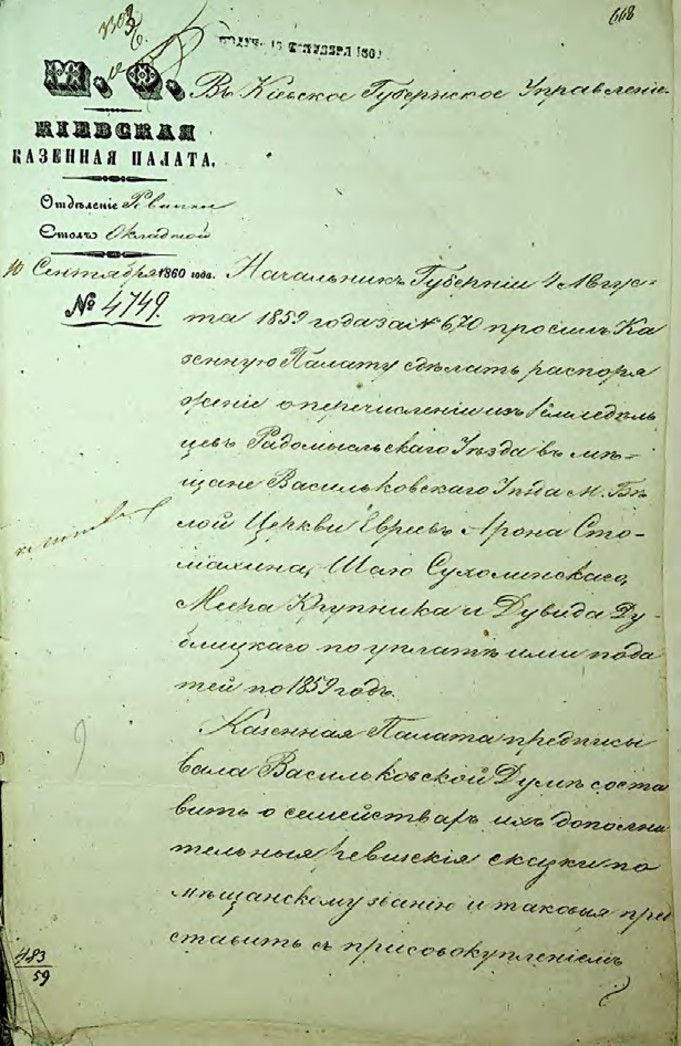 668
М. Ф.
Въ Кіевское Губернское Управленіе
КІЕВСКАЯ
КАЗЕННАЯ ПАЛАТА.
Отдѣленіе Ревизіи
Столъ Окладной
10 Сентября 1860 года.
№ 4749.
Начальникъ Губерніи 4 Авгус-
та 1859 года за № 670 просилъ Ка
зенную Палату сдѣлать распоря
женіе о перечисленіи изъ Земледѣль
цевъ Радомысльскаго Уѣзда въ мѣ-
щане Васильковскаго Уѣзда М. Бѣ
лой Церкви Евреевъ Арона Сто-
махина, Шаю Сухолинскаго,
Меера Крупника и Дувида Ду-
блицкаго по уплатѣ ими пода
тей по 1859 годъ.
Казенная Палата предписы
вала Васильковской Думѣ соста
вить о семействахъ ихъ дополни
тельныя ревизскія сказки по
мѣщанскому званію и таковыя пред
ставить съ присовокупленіемъ
483
59